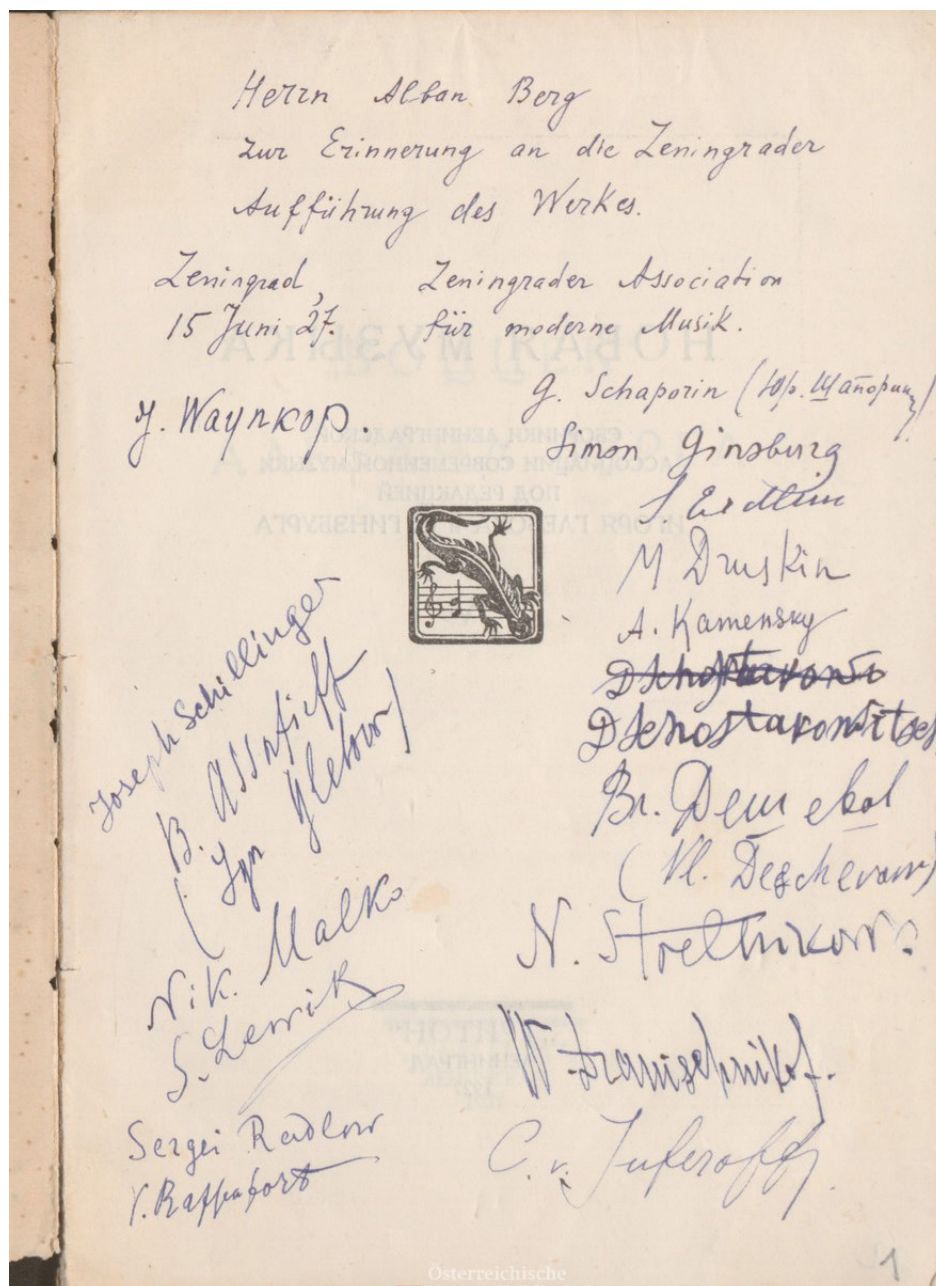 Herrn Alban Berg
zur Erinnerung an die Leningrader
Aufführung des Werkes.
Leningrad, Leningrader Association
15 Juni 27. für moderne Musik.
G. Schaporin (Юр. Шапорин)
J. Waynkop.
Simon Ginsburg
M Druskin
A. Kamensky
Dschostakowitsch
(Vl. Deschevow)
N. Strelnikow.
W. Dranischnikof.
Joseph Schillinger
B. Assafieff
(Igor Glebow)
Nik. Malko
Sergei Radlow
V. Rappaport
Österreichische
1